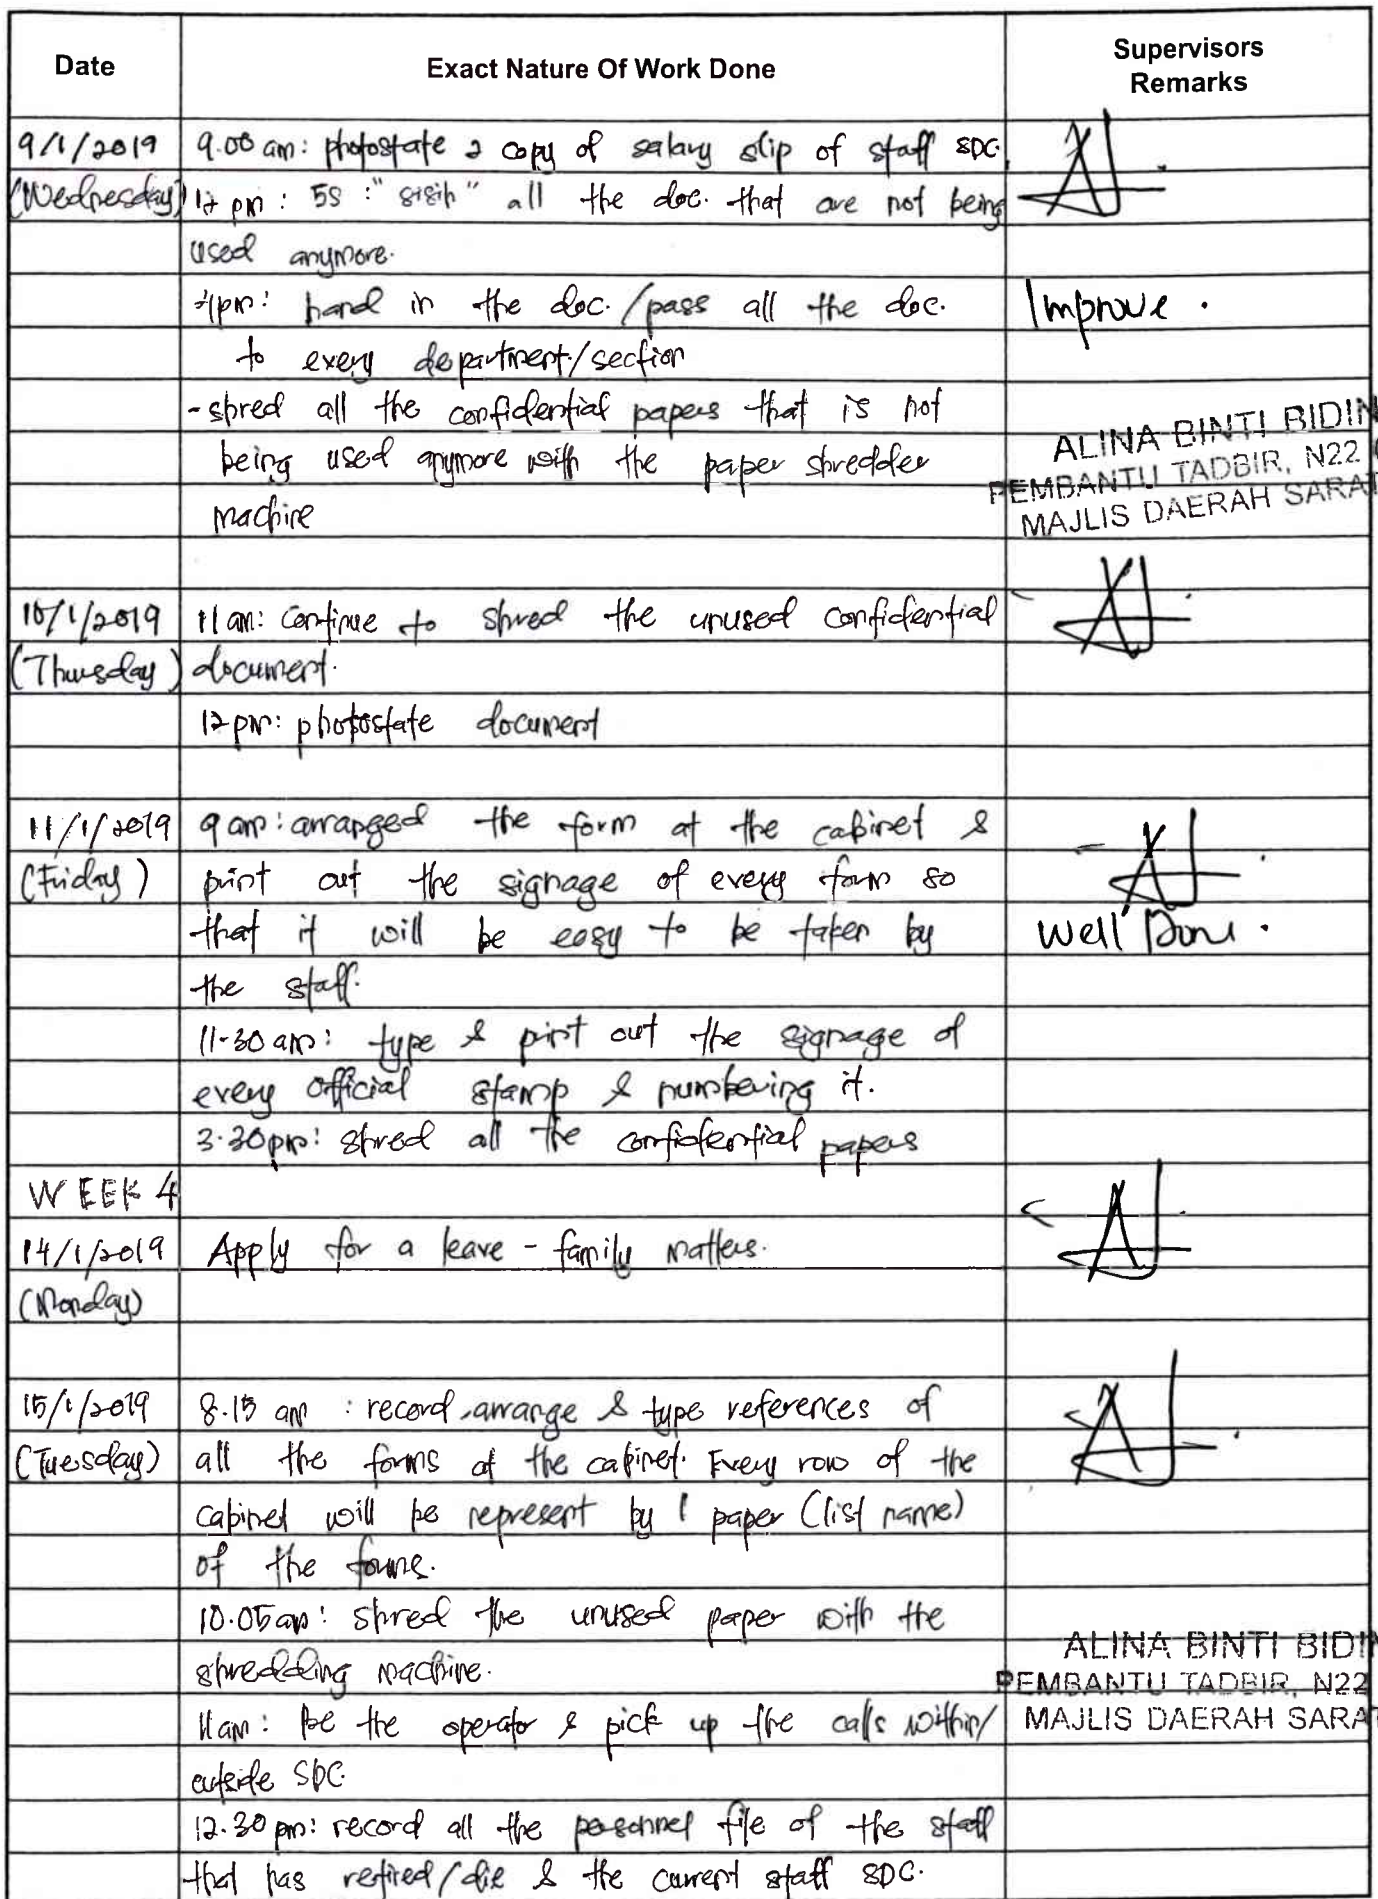 Date
Exact Nature Of Work Done
Supervisors
Remarks
9/1/2019
9.00 am: photostate 2 copy of salary slip of staff SDC.
(Wednesday)
12 pm: 5S : "sisih" all the doc. that are not being
used anymore.
4pm: hand in the doc. / pass all the doc.
Improve.
to every department/section
- shred all the confidential papers that is not
being used anymore with the paper shredder
machine
ALINA BINTI BIDIN
PEMBANTU TADBIR, N22
MAJLIS DAERAH SARAT
10/1/2019
11 am: Continue to shred the unused confidential
(Thursday)
document.
12 pm: photostate document
11/1/2019
9 am: arranged the form at the cabinet &
(Friday)
print out the signage of every form so
that it will be easy to be taken by
Well Done.
the staff.
11.30 am: type & print out the signage of
every official stamp & numbering it.
3.30 pm: shred all the confidential papers
WEEK 4
14/1/2019
Apply for a leave - family matters.
(Monday)
15/1/2019
8.15 am : record, arrange & type references of
(Tuesday)
all the forms at the cabinet. Every row of the
cabinet will be represent by 1 paper (list name)
of the forms.
10.05 am: shred the unused paper with the
shredding machine.
11am: be the operator & pick up the calls within/
outside SDC.
ALINA BINTI BIDIN
PEMBANTU TADBIR, N22
MAJLIS DAERAH SARAT
12.30 pm: record all the personnel file of the staff
that has retired/die & the current staff SDC.